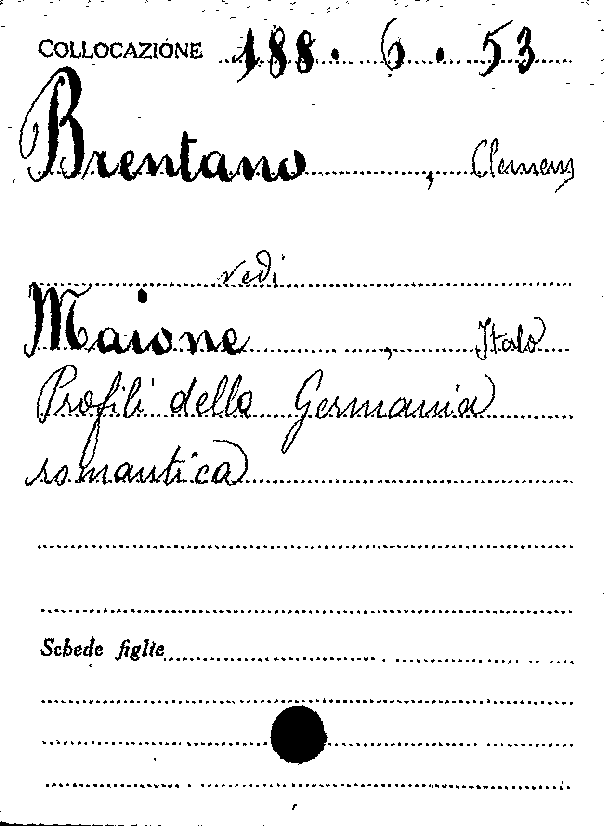 COLLOCAZIONE 188. 6. 53
Brentano, Clemens
vedi
Maione, Italo
Profili della Germania
romantica
Schede figlie